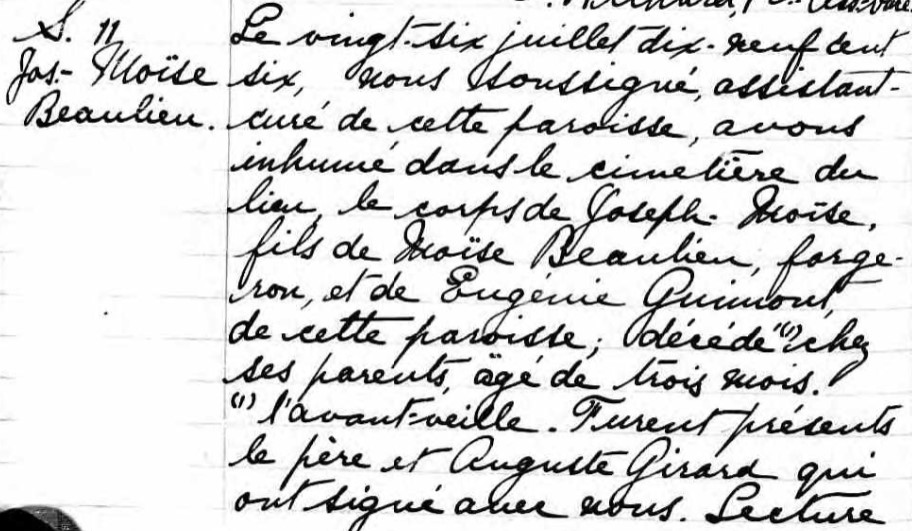 S. 11
Jos.- Moïse
Beaulieu.
Le vingt-six juillet dix-neuf cent
six, nous soussigné, assistant-
curé de cette paroisse, avons
inhumé dans le cimetière du
lieu, le corps de Joseph-Moïse,
fils de Moïse Beaulieu, forge-
ron, et de Eugénie Guimont,
de cette paroisse; décédé (1) chez
ses parents, âgé de trois mois.
(1) l'avant-veille. Furent présents
le père et Auguste Girard qui
ont signé avec nous. Lecture